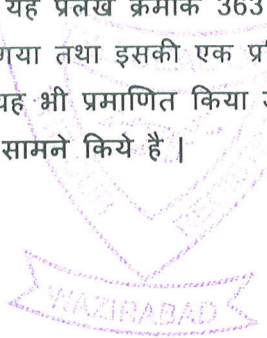 यह प्रलेख क्रमांक 363
गया तथा इसकी एक
यह भी प्रमाणित किया
सामने किये है |
WAZIRABAD